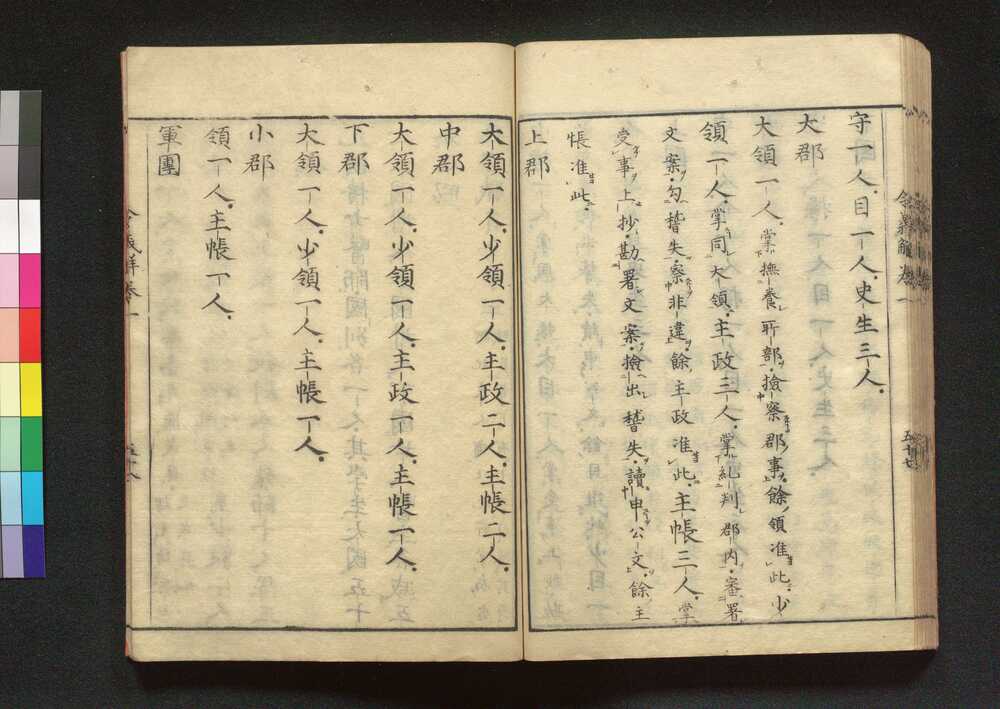 守一人。目一人。史生三人。
大郡
大領一人。掌撫養所部。撿察郡事。餘領准此。少
領一人。掌同大領。主政三人。掌糺判郡内。審署
文案。勾稽失。察非違。餘主政准此。主帳三人。掌
受事上抄。勘署文案。撿出稽失。讀申公文。餘主
帳准此。
上郡
大領一人。少領一人。主政二人。主帳二人。
中郡
大領一人。少領一人。主政一人。主帳一人。
下郡
大領一人。少領一人。主帳一人。
小郡
領一人。主帳一人。
軍團
令義解卷一
五十七
令義解卷一
五十八